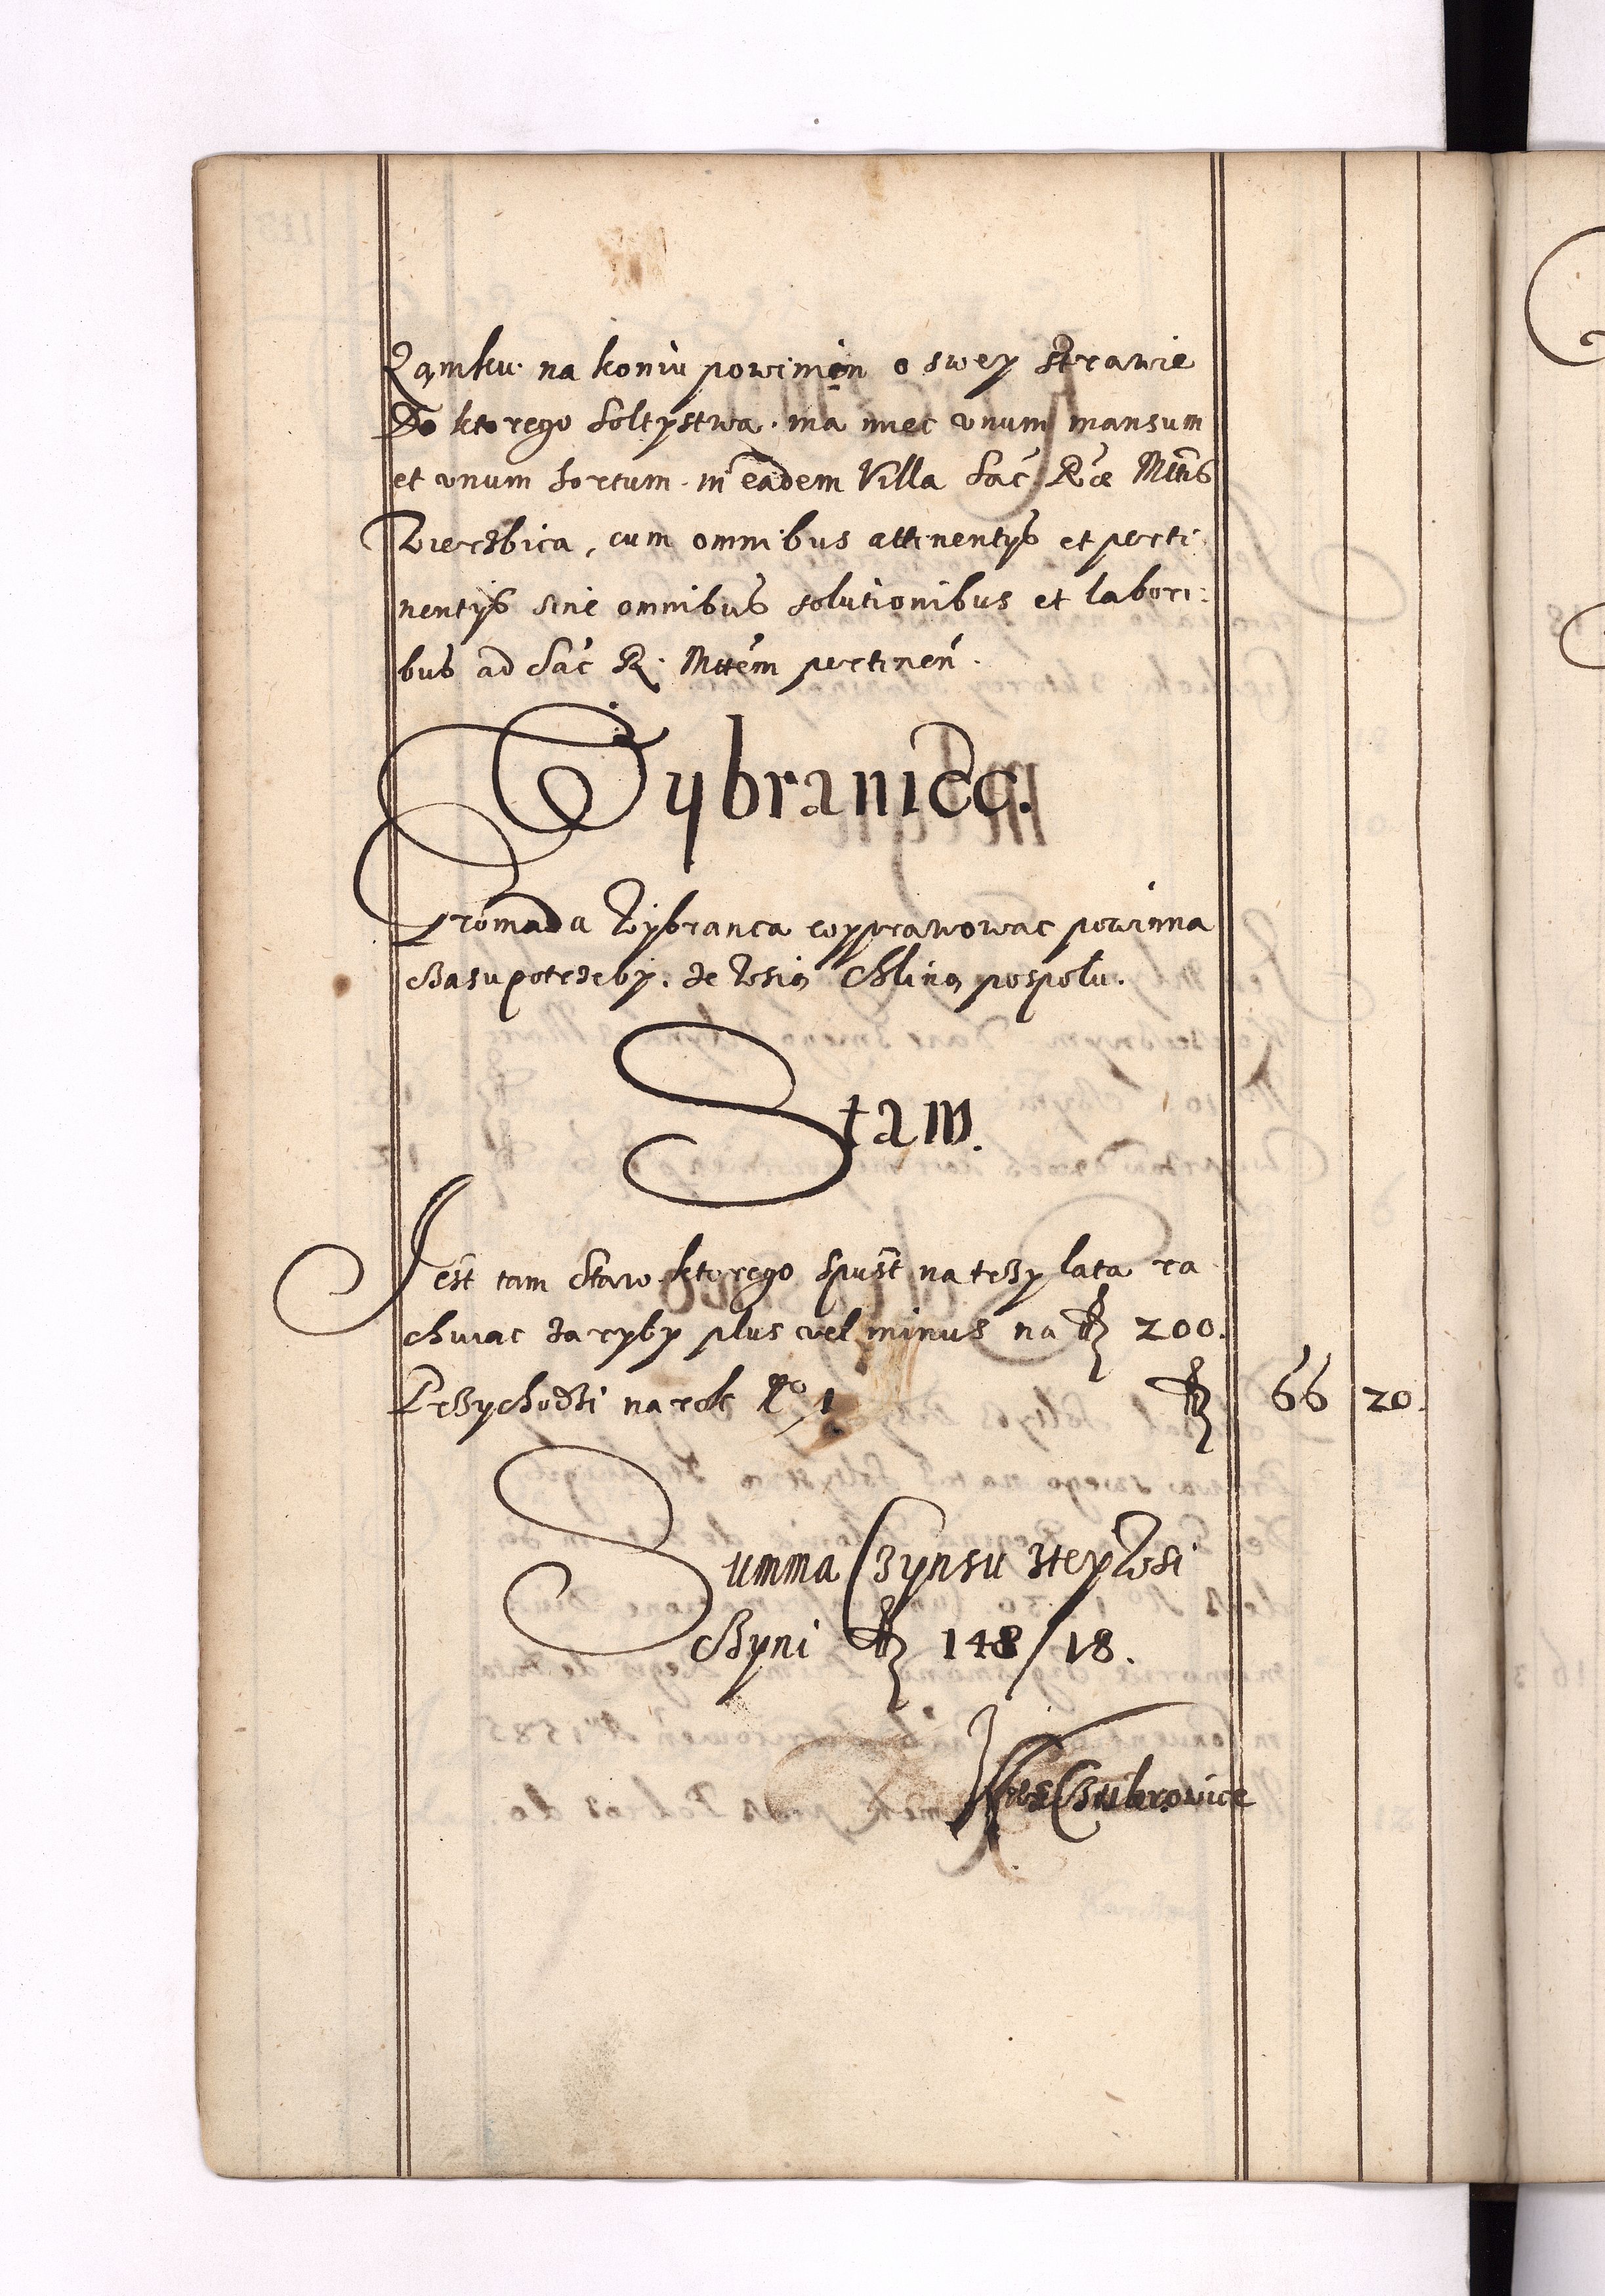 Zamku na koniu powinien o swey strawie
Do ktorego soltystwa ma miec unum mansum
et unum hortum in eadem Villa Sac Rae Mttis
Wierzbica, cum omnibus attinentys et perti
nentys sine omnibus solutionibus et labori:
bus ad Sac R. Mttem pertinen.
Wybraniec.
Gromada Wybranca wyprawowac powinna
czasu potrzeby, ze wsią Chlina pospolu.
Staw.
Jest tam Staw ktorego spust na trzy lata ra
chuiac za ryby plus vel minus na fl 200.
Przychodzi na rok No 1 fl 66 20.
Summa Czynsu ztey Wsi
czyni fl 148/18.